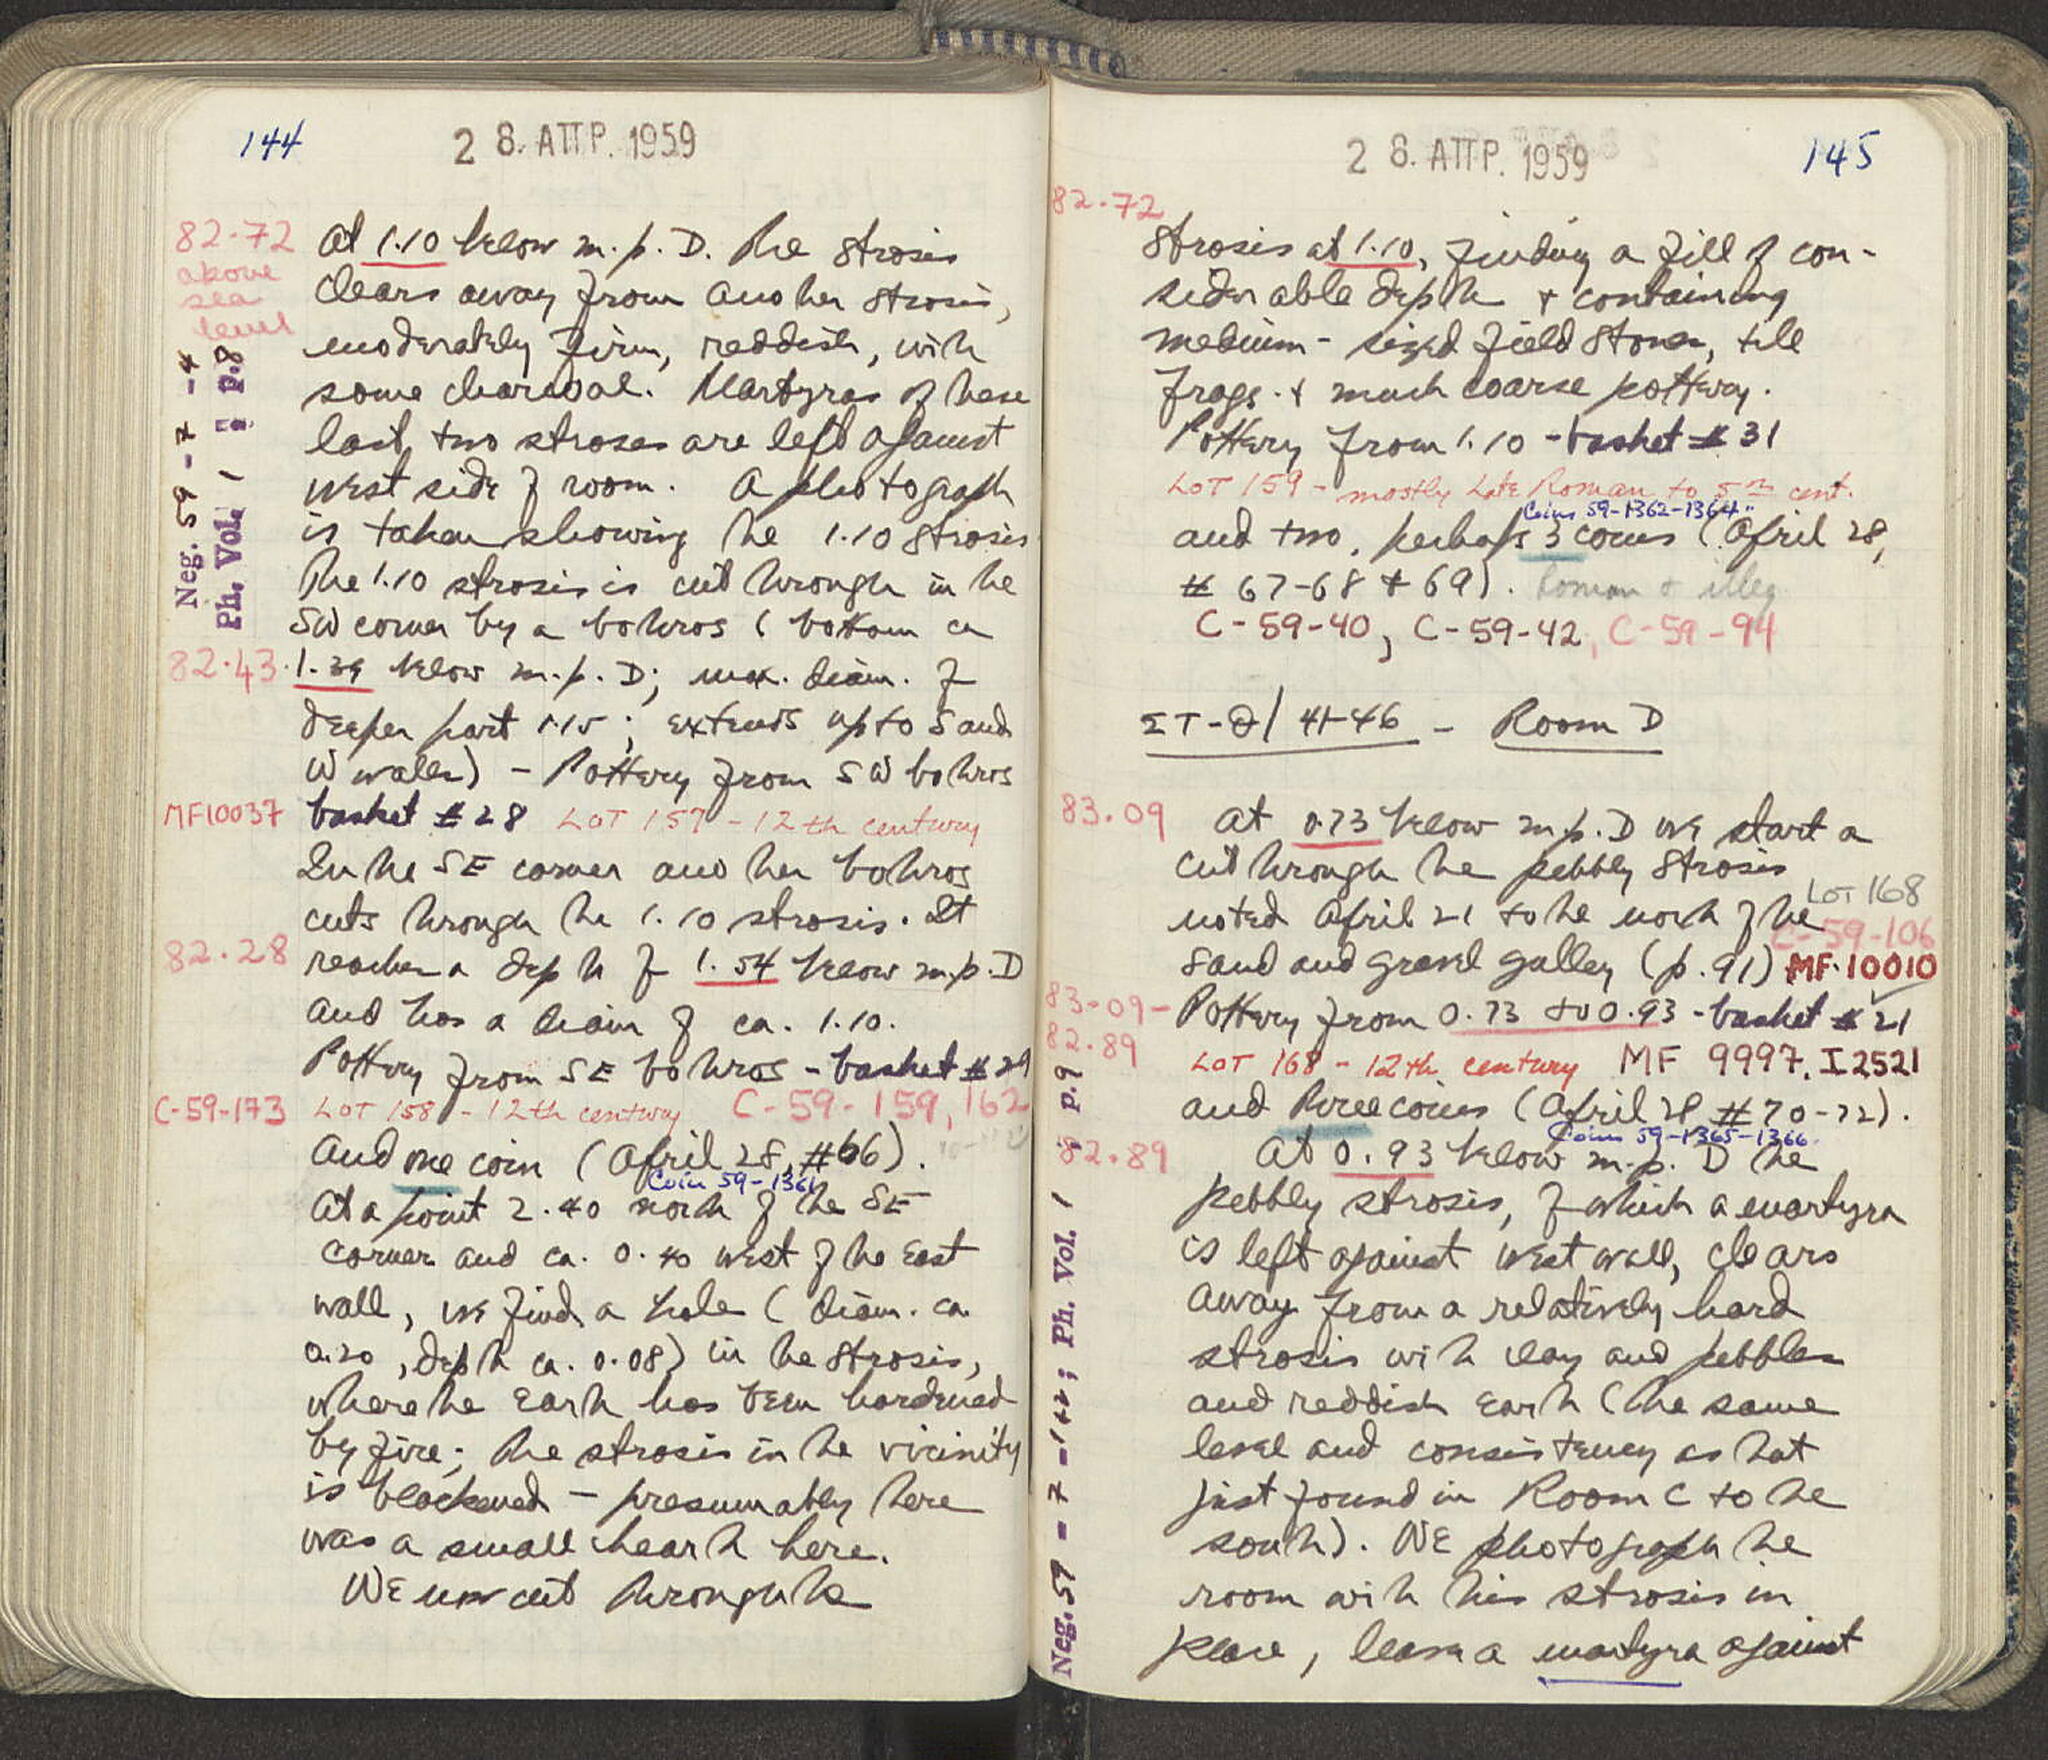 144
28. ΑΠΡ. 1959
82.72
above
sea
level
Neg. 59-7-4
Ph. Vol. 1 ; p.8
At 1.10 below m.p. D. the strosis
clears away from another strosis,
moderately firm, reddish, with
some charcoal. Martyras of these
last two stroses are left against
west side of room. A photograph
is taken showing the 1.10 strosis
The 1.10 strosis is cut through in the
SW corner by a bothros (bottom ca
82.43
1.39 below m.p. D; max. diam. of
deeper part 1.15; extends up to S and
W walls) - Pottery from SW bothros
MF10037
basket # 28 LOT 157 - 12th century
In the SE corner another bothros
cuts through the 1.10 strosis. It
82.28
reaches a depth of 1.54 below m.p. D
and has a diam of ca. 1.10.
Pottery from SE bothros - basket # 29
C-59-173 LOT 158 - 12th century C-59-159, 162
and one coin (April 28, #66).
Coin 59-1361
At a point 2.40 north of the SE
corner and ca. 0.40 west of the East
wall, we find a hole (diam. ca.
0.20, depth ca. 0.08) in the strosis,
where the earth has been hardened
by fire; the strosis in the vicinity
is blackened - presumably there
was a small hearth here.
We now cut through the
28. ΑΠΡ. 1959
145
82.72
strosis at 1.10, finding a fill of con-
siderable depth + containing
medium-sized field stones, tile
frags. + much coarse pottery.
Pottery from 1.10 - basket # 31
LOT 159 - mostly Late Roman to 5th cent.
Coins 59-1362-1364
and two, perhaps 3 coins (April 28,
# 67-68 + 69). Roman + illeg
C-59-40, C-59-42, C-59-94
ΣΤ-Θ/41-46 - Room D
83.09
At 0.73 below m.p. D we start a
cut through the pebbly strosis
LOT 168
noted April 21 to the north of the
C-59-106
sand and gravel galley (p. 91) MF.10010
83.09-
82.89
Pottery from 0.73 to 0.93 - basket # 21
LOT 168 - 12th century MF 9997, I2521
and three coins (April 28 #70-72).
Coins 59-1365-1366
82.89
At 0.93 below m.p. D the
pebbly strosis, of which a martyra
is left against west wall, clears
away from a relatively hard
strosis with clay and pebbles
and reddish earth (the same
level and consistency as that
just found in Room C to the
south). We photograph the
room with this strosis in
place, leave a martyra against
Ph. Vol. 1 ; p.9